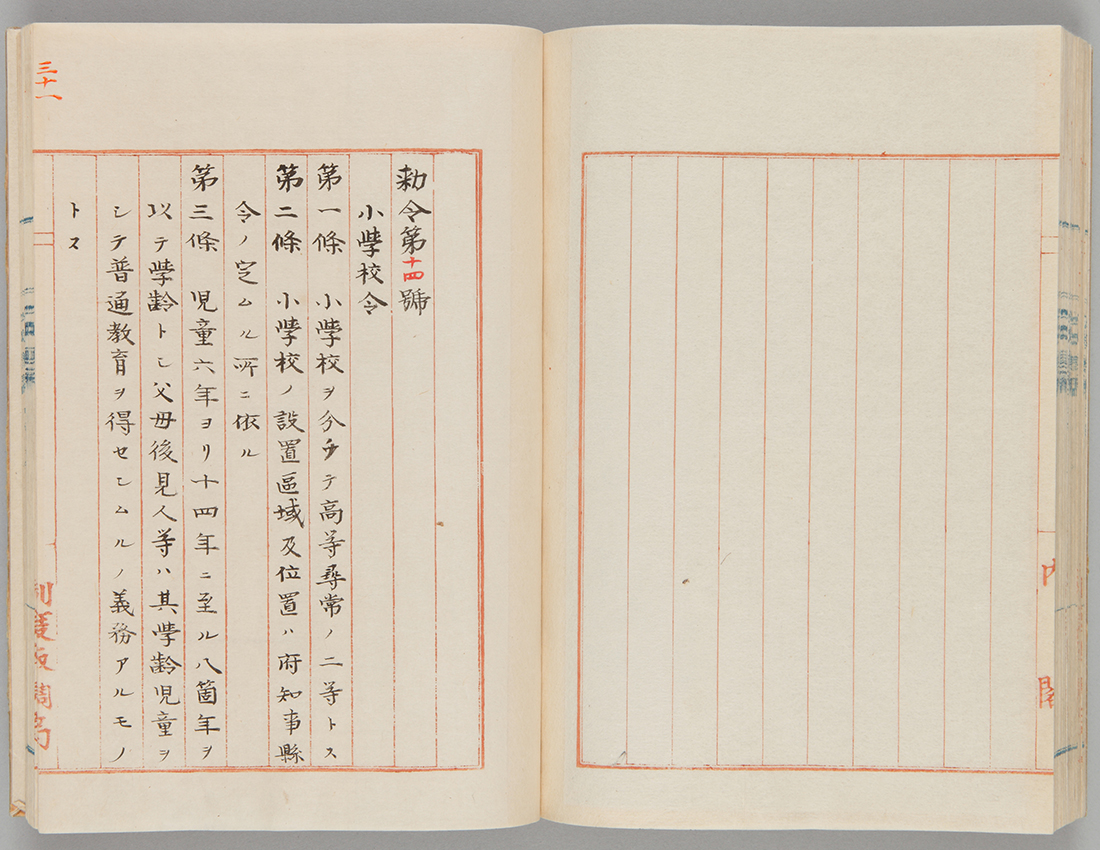 勅令第十四號
小學校令
第一條　小學校ヲ分チテ高等尋常ノ二等トス
第二條　小學校ノ設置區域及位置ハ府知事縣
令ノ定ムル所ニ依ル
第三條　児童六年ヨリ十四年ニ至ル八箇年ヲ
以テ學齡トシ父母後見人等ハ其學齡児童ヲ
シテ普通教育ヲ得セシムルノ義務アルモノ
トス
三十一